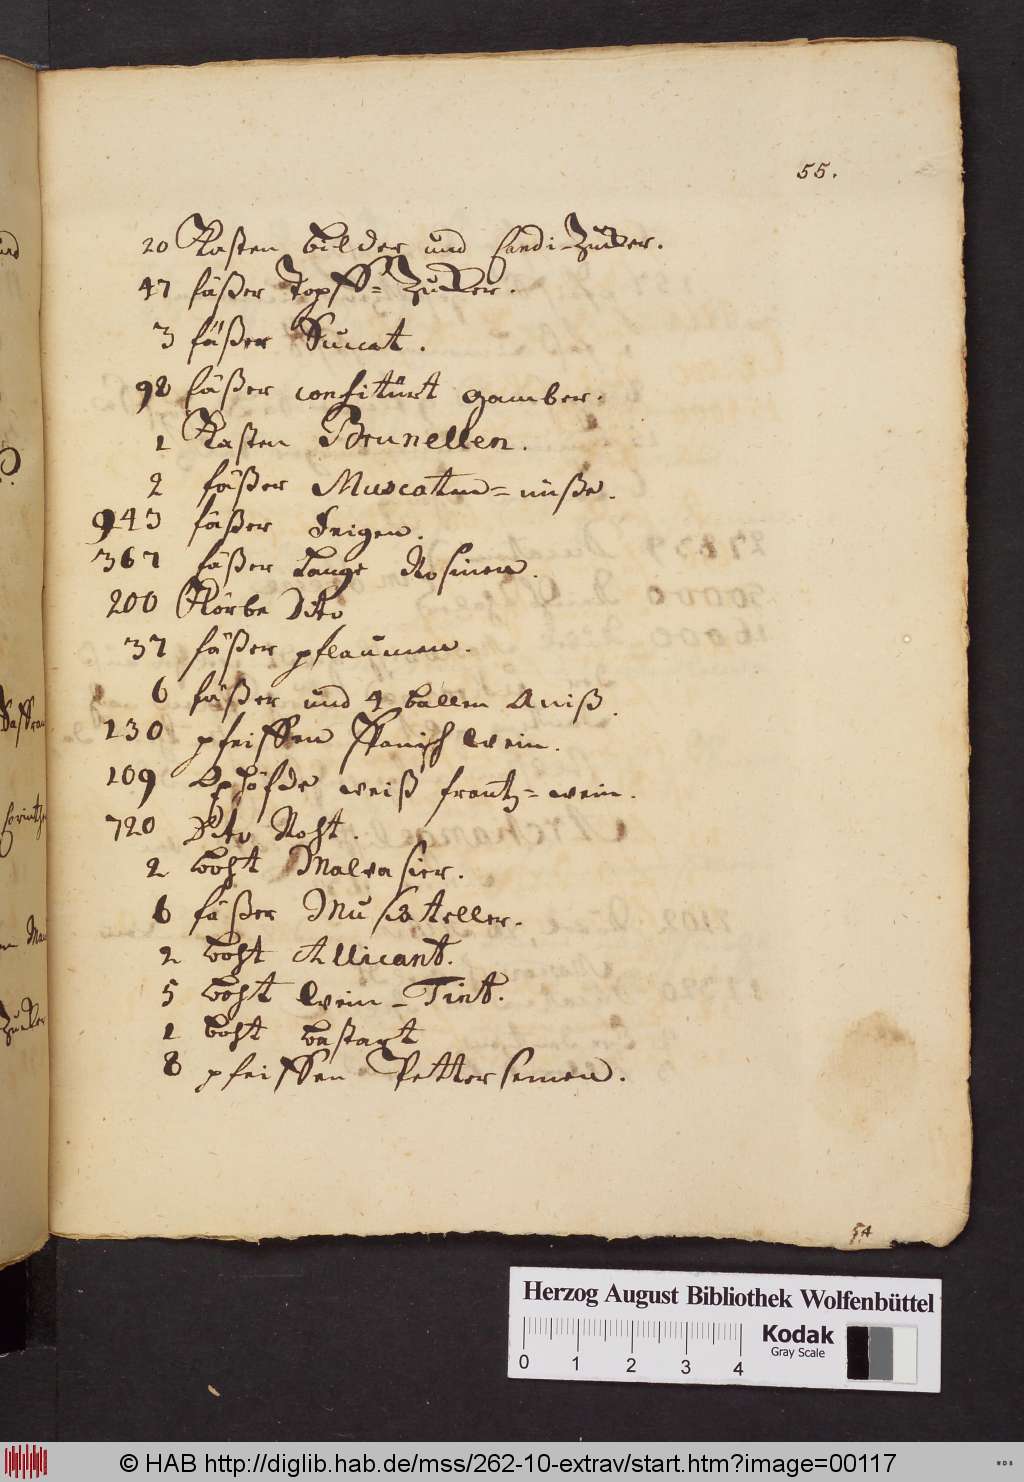 55.
20 Kasten bilder und Candi-Zucker.
47 fäßer Topff-Zucker.
3 fäßer Succat.
98 fäßer confitürt gamber.
1 Kasten Brunellen.
2 fäßer Muscaten-nüße.
943 fäßer Feigen.
367 fäßer lange Rosinen.
200 Körbe Dito
37 fäßer pflaumen.
6 fäßer und 4 ballen Aniß.
130 pfeiffen Spanisch Wein.
109 Oxhöfde weiß frantz-wein.
720 Dito Roht.
2 boht Malvasier.
6 fäßer Muscateller.
2 boht Allicant.
5 boht Wein-Tint.
1 boht bastart
8 pfeiffen Pettersemen.
54
Saffran
Corinth
Zucker
Herzog August Bibliothek Wolfenbüttel
0 1 2 3 4
Kodak
Gray Scale
© HAB http://diglib.hab.de/mss/262-10-extrav/start.htm?image=00117